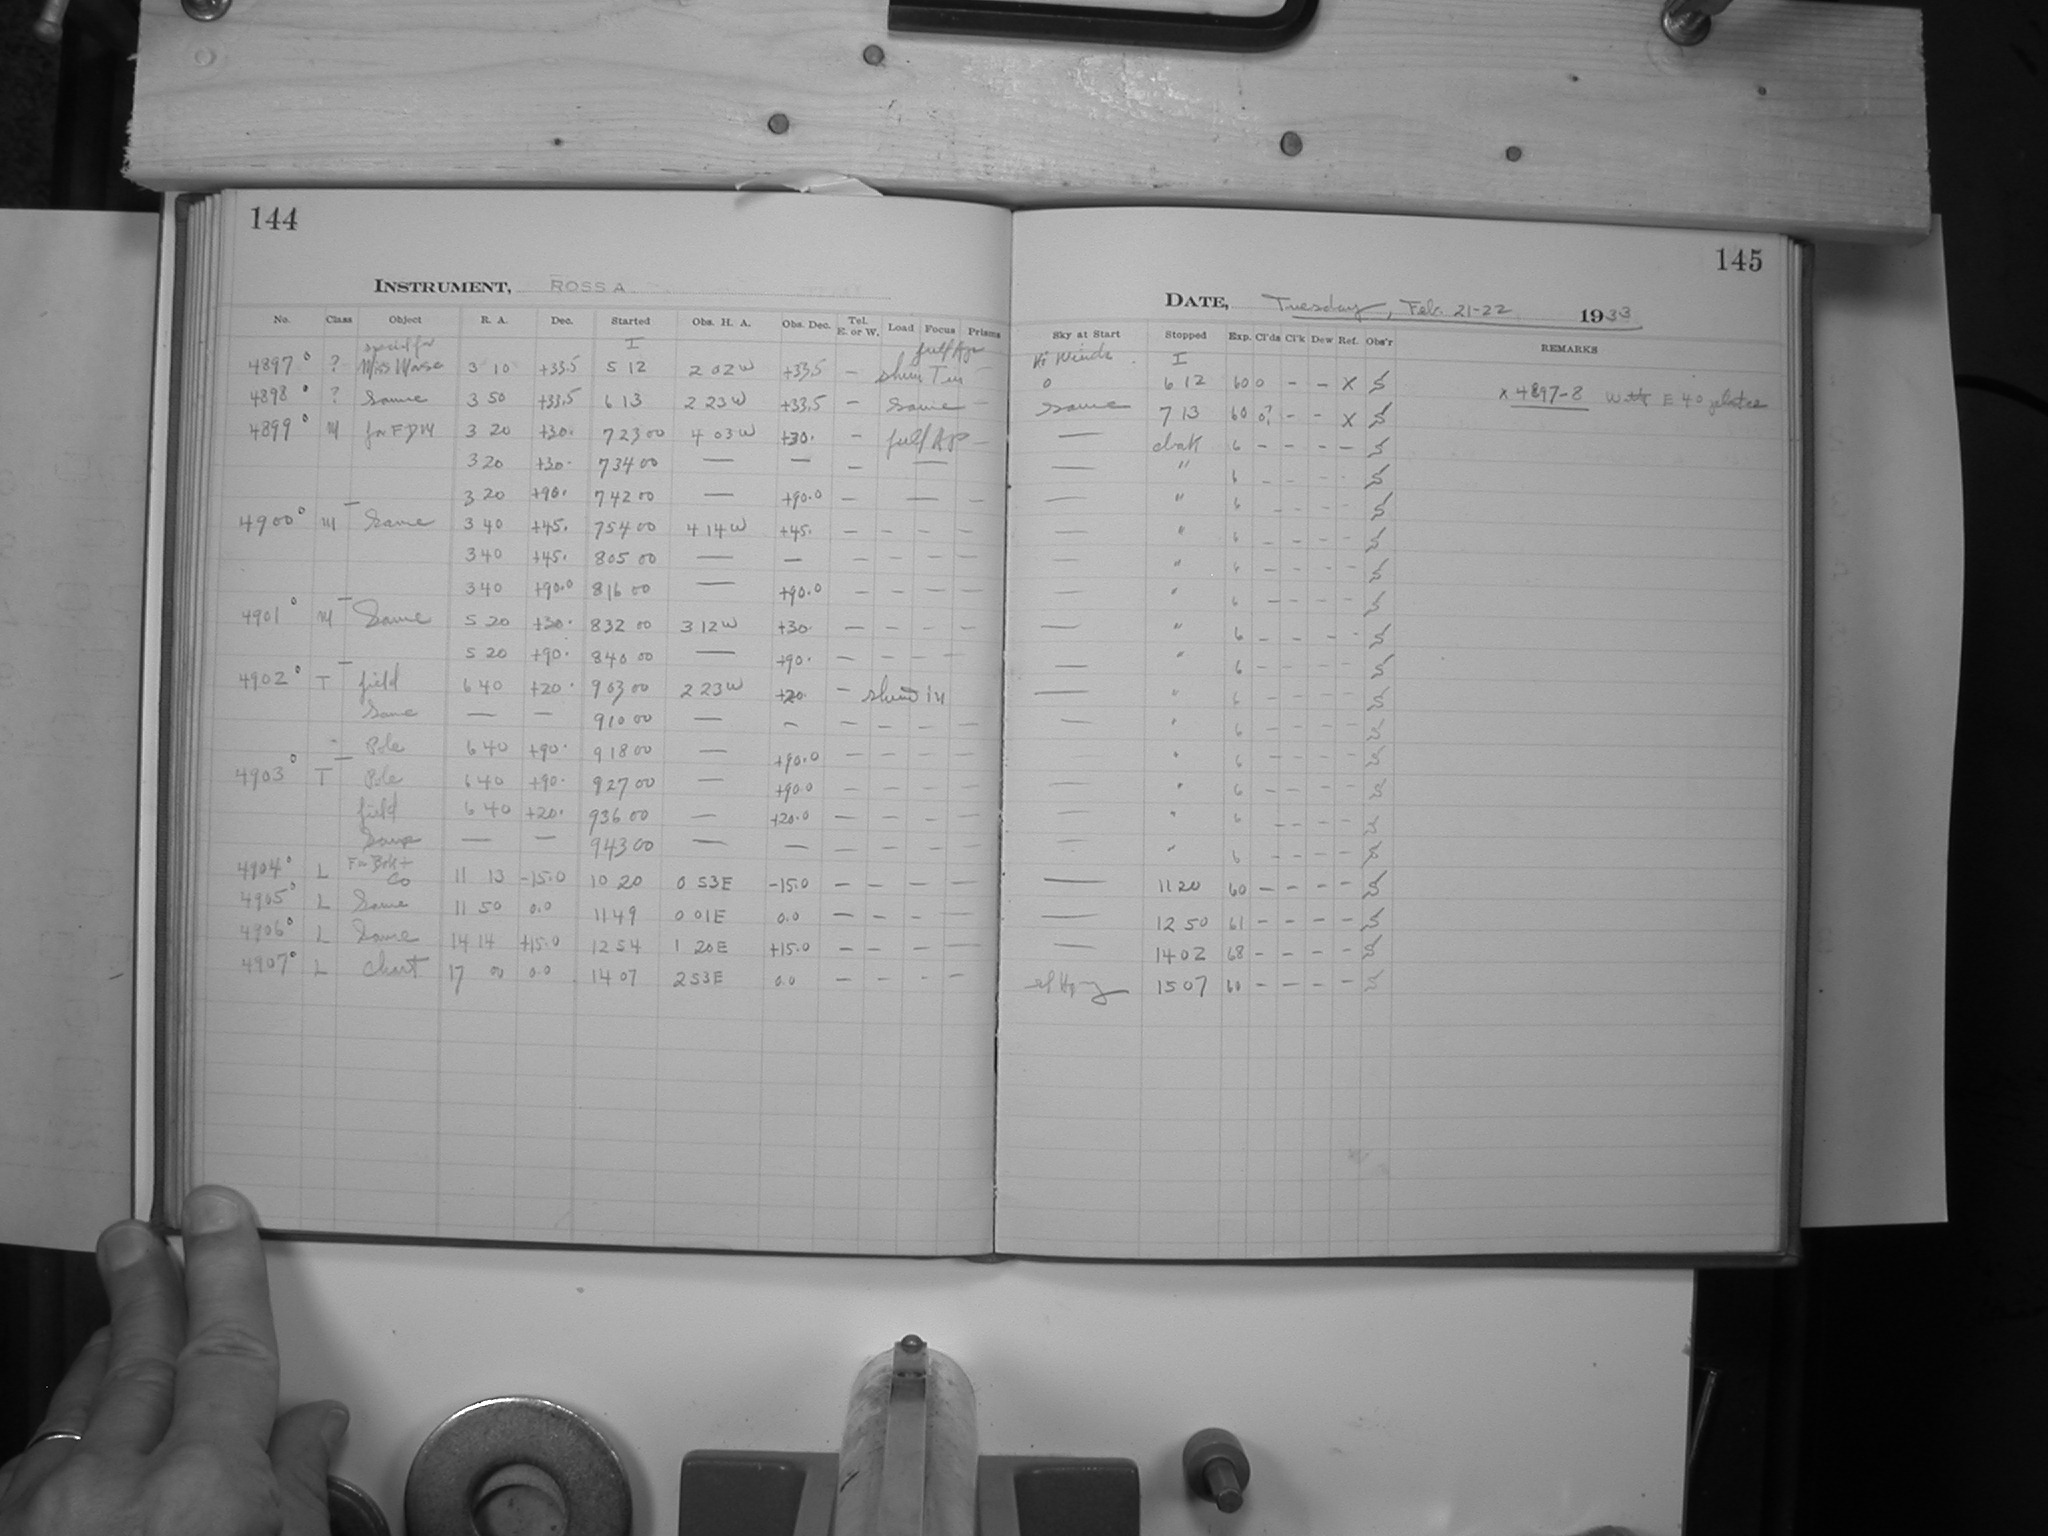 144
145
INSTRUMENT, ROSS A
DATE, Tuesday, Feb. 21-22 1933
No. Class Object R. A. Dec. Started Obs. H. A. Obs. Dec. Tel. E. or W. Load Focus Prisms Sky at Start Stopped Exp. Cl'ds Cl'k Dew Ref. Obs'r REMARKS
special for I full Ap I
4897° ? Miss 3 10 +33.5 5 12 2 02 W +33.5 — 0 6 12 60 0 - - X
4898° ? Same 3 50 +33.5 6 13 2 23 W +33.5 — Same — Same 7 13 60 0? - - X x 4897-8 With E 40 plates
4899° M for FDM 3 20 +30. 7 23 00 4 03 W +30. — full Ap — — 6 - - - -
3 20 +30. 7 34 00 — — — — — " 6 - - - -
3 20 +90. 7 42 00 — +90.0 — — — — " 6 - - - -
4900° M Same 3 40 +45. 7 54 00 4 14 W +45. — — — — — " 6 - - - -
3 40 +45. 8 05 00 — — — — — — — " 6 - - - -
3 40 +90.0 8 16 00 — +90.0 — — — — — " 6 - - - -
4901° M Same 5 20 +30. 8 32 00 3 12 W +30. — — — — — " 6 - - - -
5 20 +90. 8 40 00 — +90. — — — — — " 6 - - - -
4902° T field 6 40 +20. 9 03 00 2 23 W +20. — — " 6 - - - -
Same — — 9 10 00 — — — — — — — " 6 - - - -
Pole 6 40 +90. 9 18 00 — +90.0 — — — — — " 6 - - - -
4903° T Pole 6 40 +90. 9 27 00 — +90.0 — — — — — " 6 - - - -
field 6 40 +20. 9 36 00 — +20.0 — — — — — " 6 - - - -
Same — — 9 43 00 — — — — — — — " 6 - - - -
4904° L For Bok + Co 11 13 -15.0 10 20 0 53 E -15.0 — — — — — 11 20 60 - - - -
4905° L Same 11 50 0.0 11 49 0 01 E 0.0 — — — — — 12 50 61 - - - -
4906° L Same 14 14 +15.0 12 54 1 20 E +15.0 — — — — — 14 02 68 - - - -
4907° L Chart 17 00 0.0 14 07 2 53 E 0.0 — — — — 15 07 60 - - - -